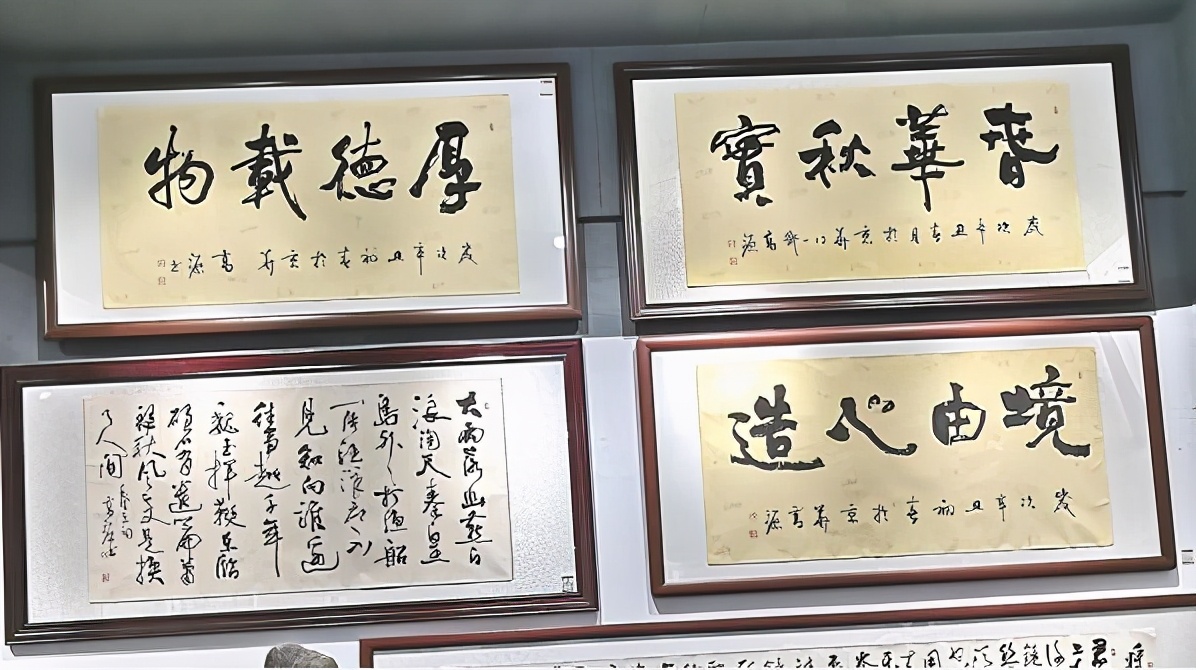 厚德載物
歲次辛丑初春於京華高源書
春華秋實
歲次辛丑春月於京華高源
大雨落幽燕白
浪滔天秦皇
島外打漁船
一片汪洋都不
見知向誰邊
往事越千年
魏武揮鞭東臨
碣石有遺篇蕭
瑟秋風今又是換
了人間
境由心造
歲次辛丑初春於京華高源